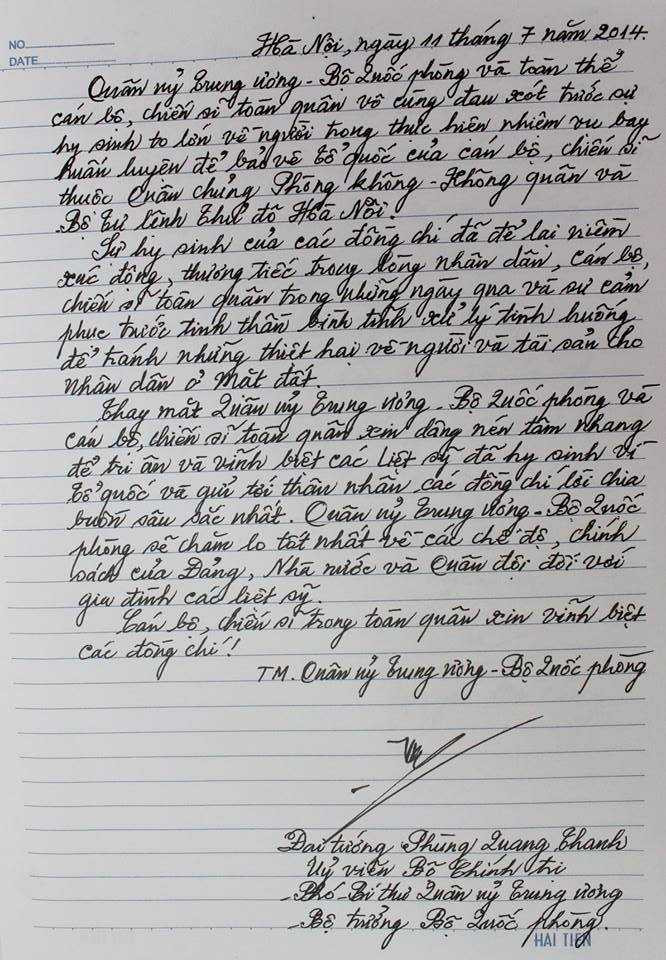 NO.
DATE
Hà Nội, ngày 11 tháng 7 năm 2014.
Quân uỷ Trung ương - Bộ Quốc phòng và toàn thể
cán bộ, chiến sĩ toàn quân vô cùng đau xót trước sự
hy sinh to lớn về người trong thực hiện nhiệm vụ bay
huấn luyện để bảo vệ Tổ quốc của cán bộ, chiến sĩ
thuộc Quân chủng Phòng không - Không quân và
Bộ Tư lệnh Thủ đô Hà Nội.
Sự hy sinh của các đồng chí đã để lại niềm
xúc động, thương tiếc trong lòng nhân dân, cán bộ,
chiến sĩ toàn quân trong những ngày qua và sự cảm
phục trước tinh thần bình tĩnh xử lý tình huống
để tránh những thiệt hại về người và tài sản cho
nhân dân ở mặt đất.
Thay mặt Quân uỷ Trung ương - Bộ Quốc phòng và
cán bộ, chiến sĩ toàn quân xin dâng nén tâm nhang
để tri ân và vĩnh biệt các Liệt sỹ đã hy sinh vì
Tổ quốc và gửi tới thân nhân các đồng chí lời chia
buồn sâu sắc nhất. Quân uỷ Trung ương - Bộ Quốc
phòng sẽ chăm lo tốt nhất về các chế độ, chính
sách của Đảng, Nhà nước và Quân đội đối với
gia đình các liệt sỹ.
Cán bộ, chiến sĩ trong toàn quân xin vĩnh biệt
các đồng chí!
TM. Quân uỷ Trung ương - Bộ Quốc phòng
Đại tướng Phùng Quang Thanh
Uỷ viên Bộ Chính trị
- Phó Bí thư Quân uỷ Trung ương
- Bộ trưởng Bộ Quốc phòng.
HẢI TIẾN